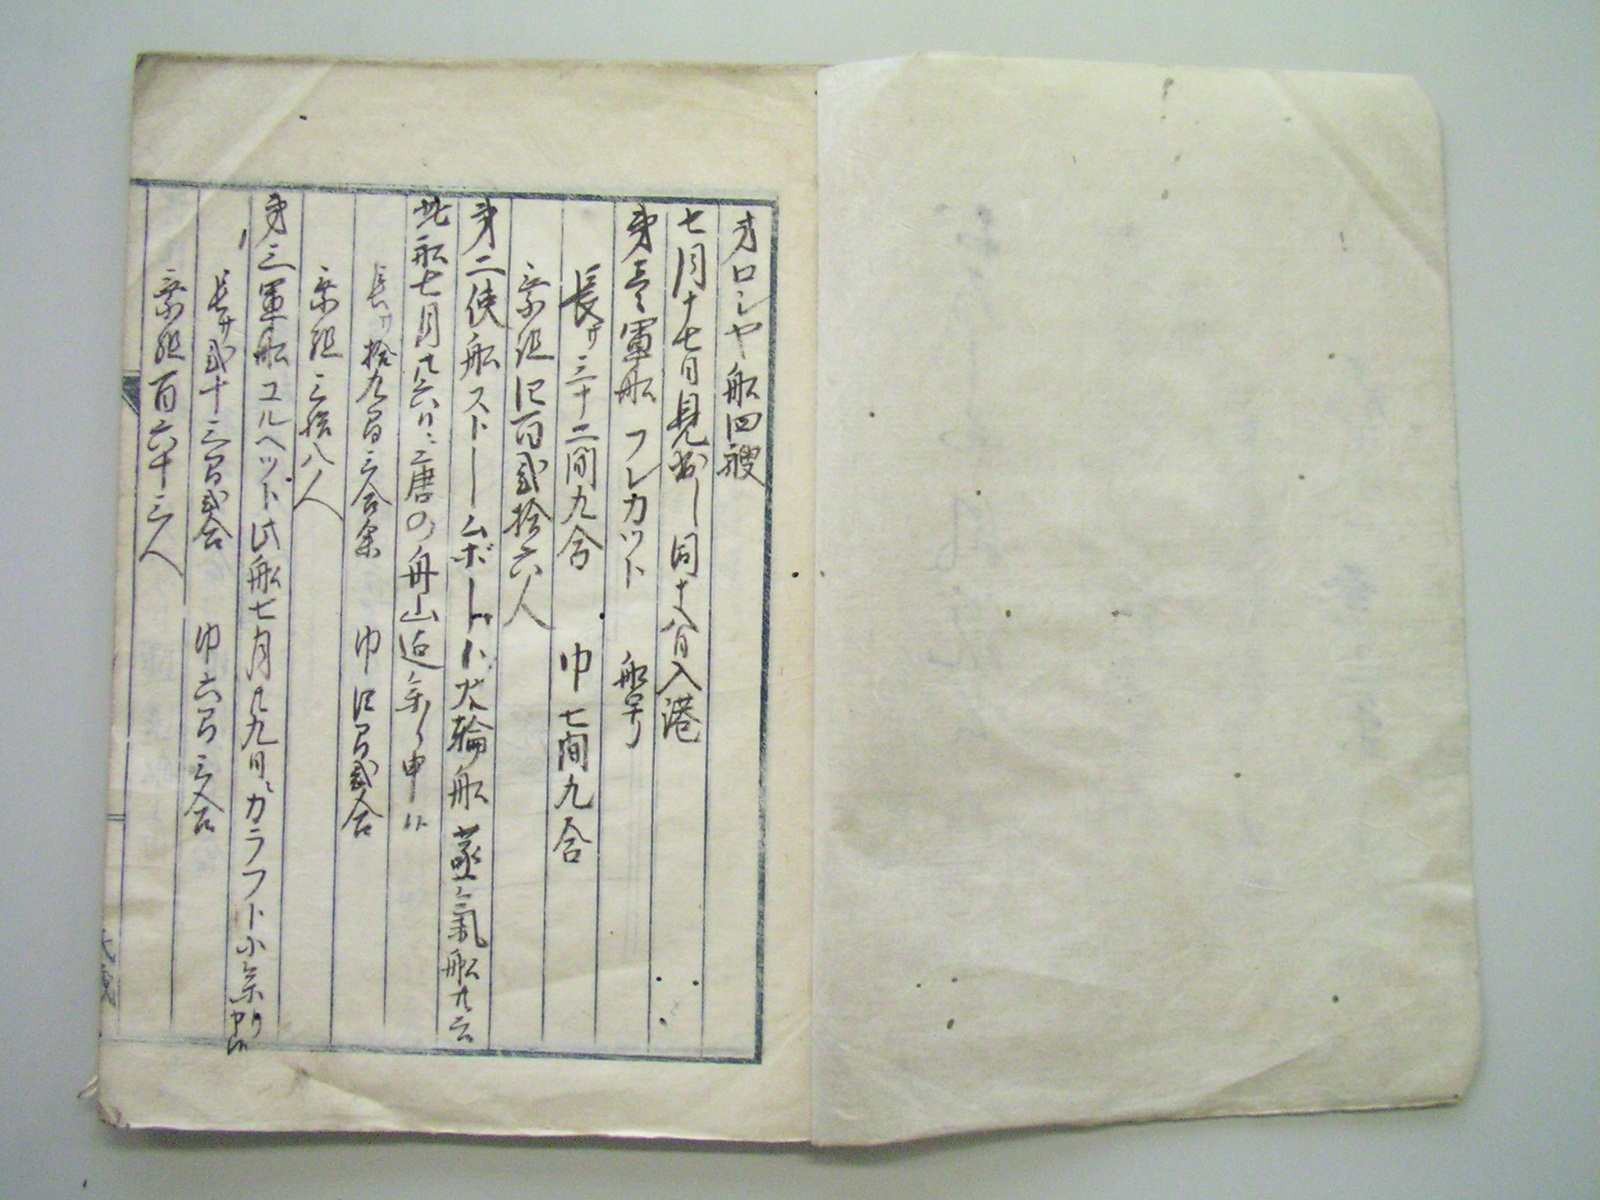 オロシヤ船四艘
七月十七日見出し 同十八日入港
第壱軍船 フレカット 船号
長サ三十二間九合 巾七間九合
乗組四百弐拾六人
第二使船ストームボート 火輪船 蒸氣船
此船七月廿六日ニ唐の舟山迄 申
長サ拾九間三合余 巾四間弐合
乗組三拾八人
第三軍船コルヘット此船七月廿九日カラフト
長サ弐十三間弐合 巾六間三合
乗組百六十三人